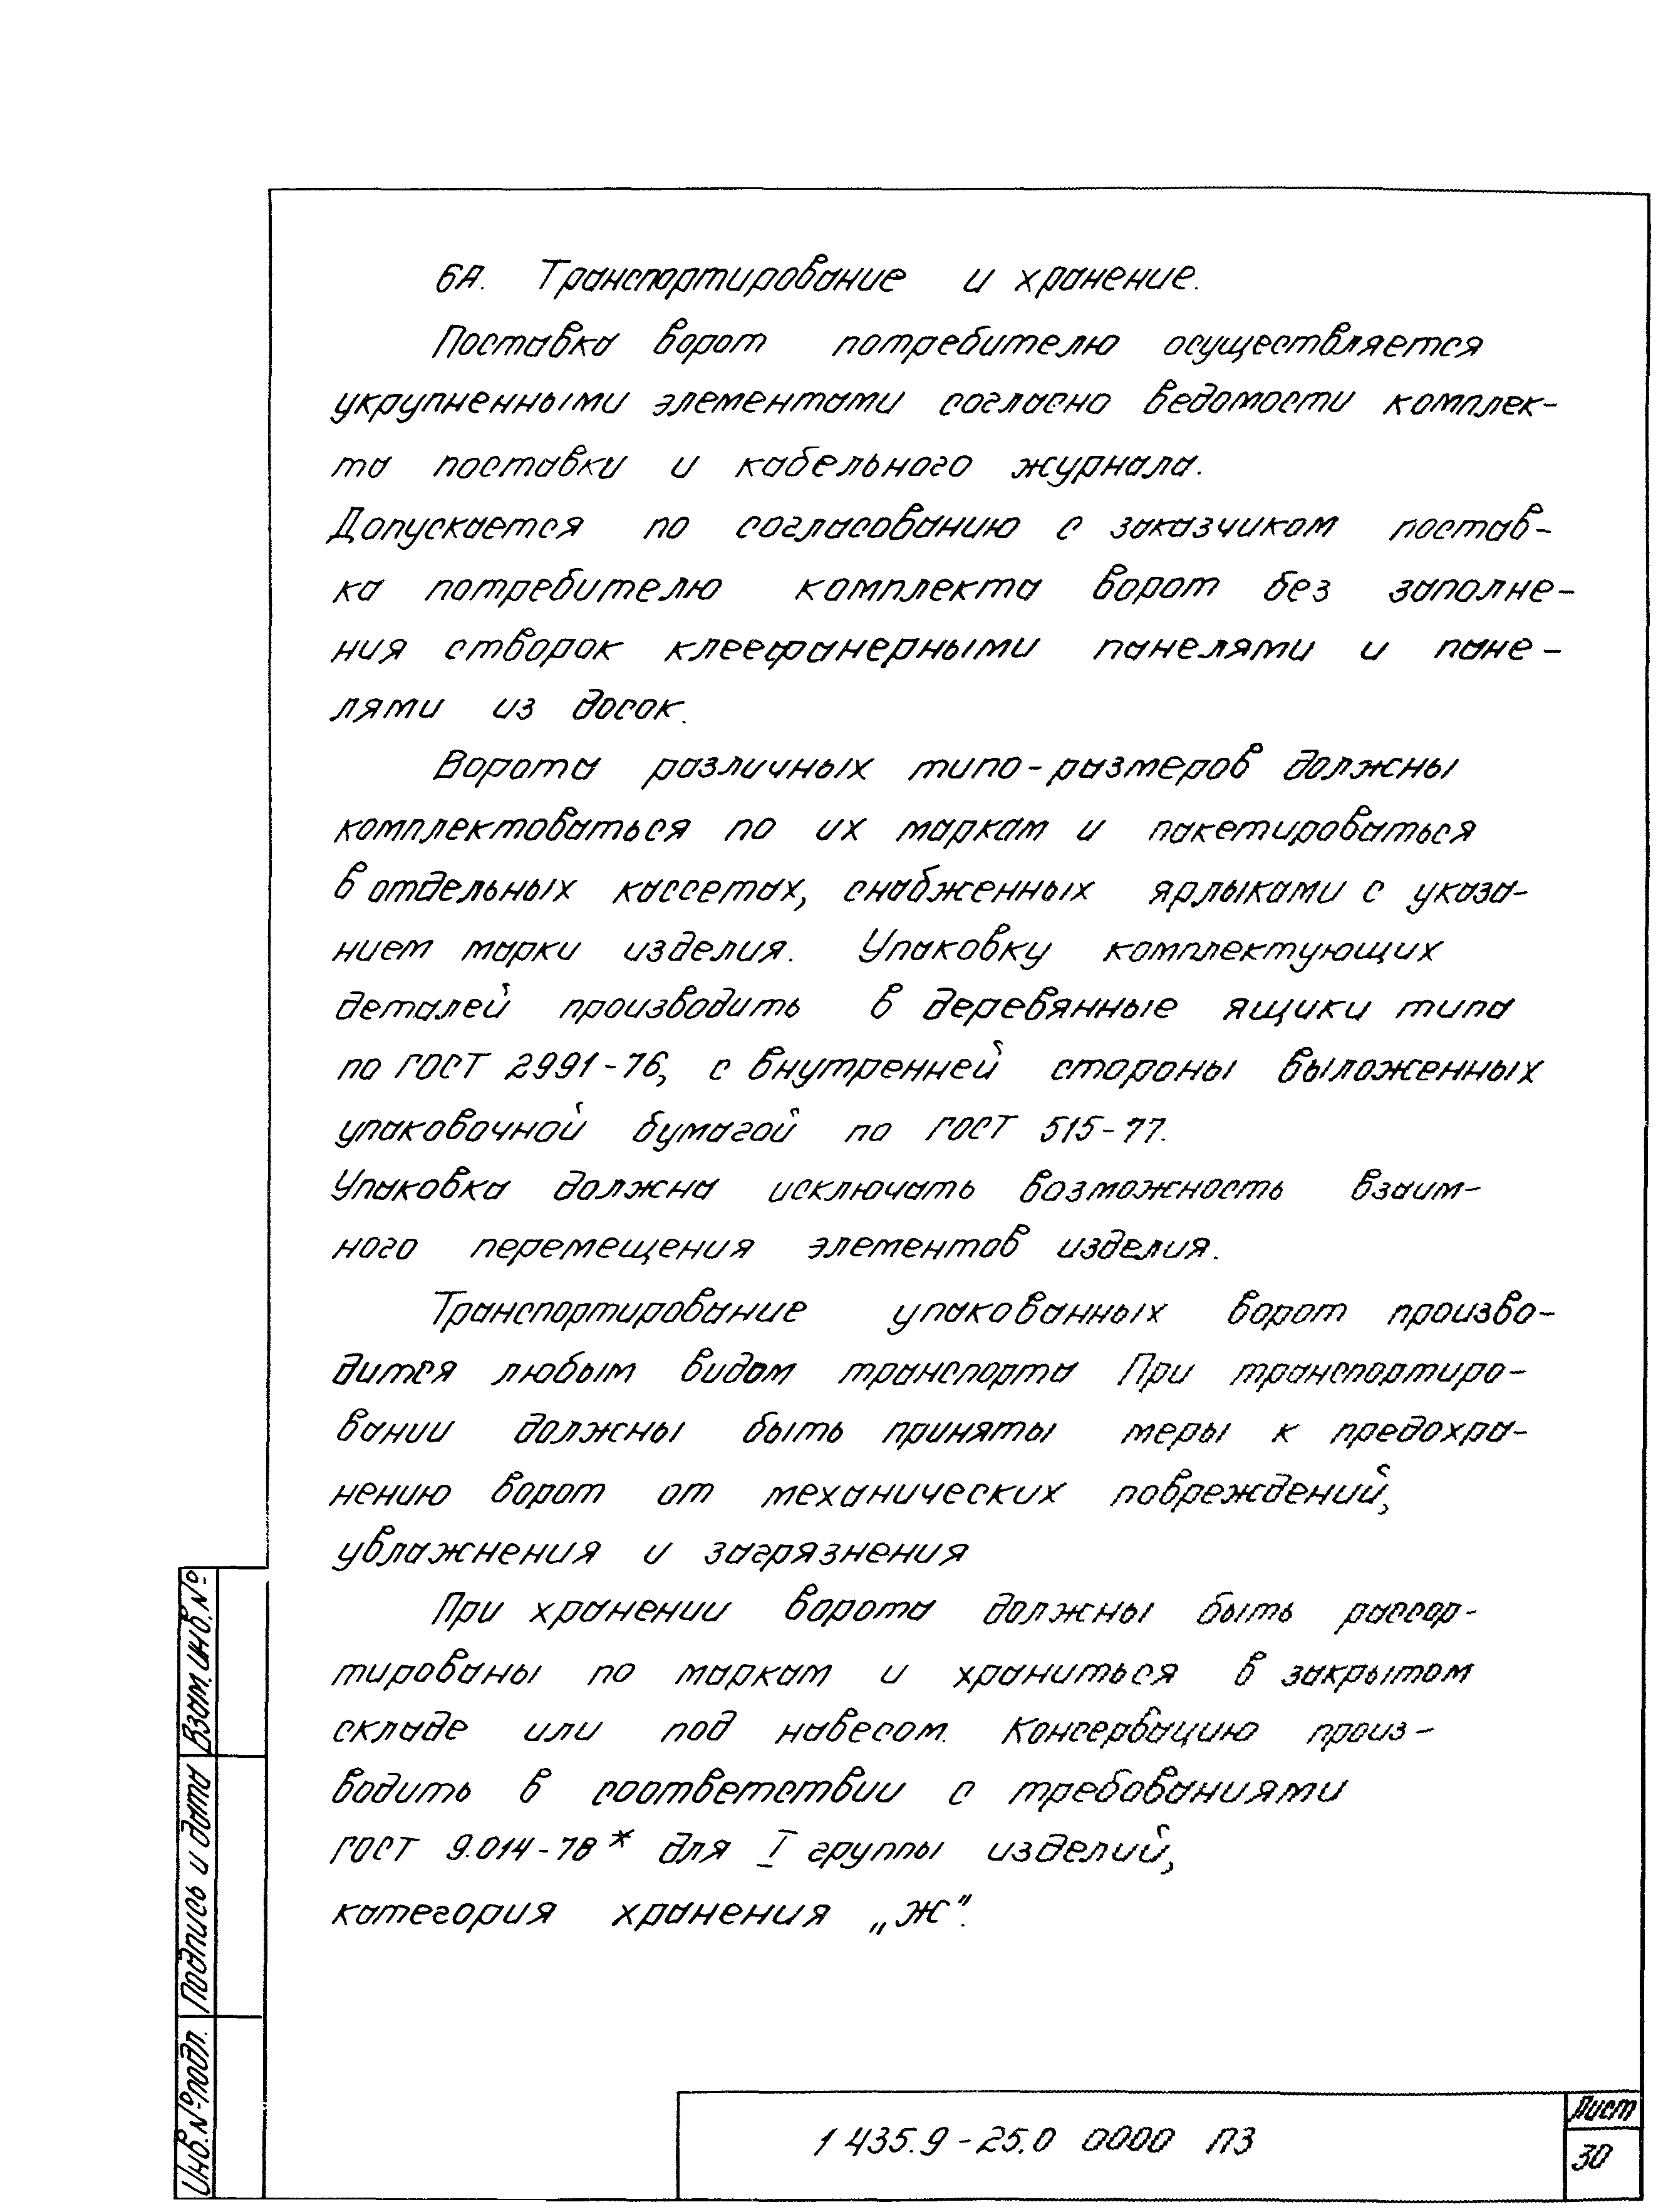 6А. Транспортирование и хранение.
Поставка ворот потребителю осуществляется
укрупненными элементами согласно ведомости комплек-
та поставки и кабельного журнала.
Допускается по согласованию с заказчиком постав-
ка потребителю комплекта ворот без заполне-
ния створок клеефанерными панелями и пане-
лями из досок.
Ворота различных типо-размеров должны
комплектоваться по их маркам и пакетироваться
в отдельных кассетах, снабженных ярлыками с указа-
нием марки изделия. Упаковку комплектующих
деталей производить в деревянные ящики типа
по ГОСТ 2991-76, с внутренней стороны выложенных
упаковочной бумагой по ГОСТ 515-77.
Упаковка должна исключать возможность взаим-
ного перемещения элементов изделия.
Транспортирование упакованных ворот произво-
дится любым видом транспорта При транспортиро-
вании должны быть приняты меры к предохра-
нению ворот от механических повреждений,
увлажнения и загрязнения
При хранении ворота должны быть рассор-
тированы по маркам и храниться в закрытом
складе или под навесом. Консервацию произ-
водить в соответствии с требованиями
ГОСТ 9.014-78* для I группы изделий,
категория хранения „Ж".
Взам. инв. №
Подпись и дата
Инв. № подл.
1 435.9-25.0 0000 ПЗ
Лист
30